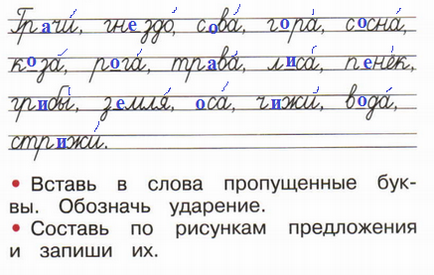 Грачи́, гнездо́, сова́, гора́, сосна́,
коза́, рога́, трава́, лиса́, пенёк,
грибы́, земля́, оса́, чижи́, вода́,
стрижи́.
• Вставь в слова пропущенные бук-
вы. Обозначь ударение.
• Составь по рисункам предложения
и запиши их.